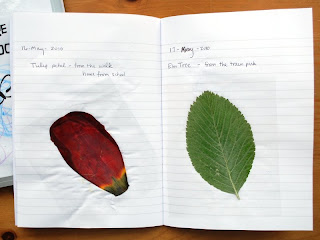 16-May-2010
Tulip petal - from the walk
home from school
17-May-2010
Elm Tree - from the train park